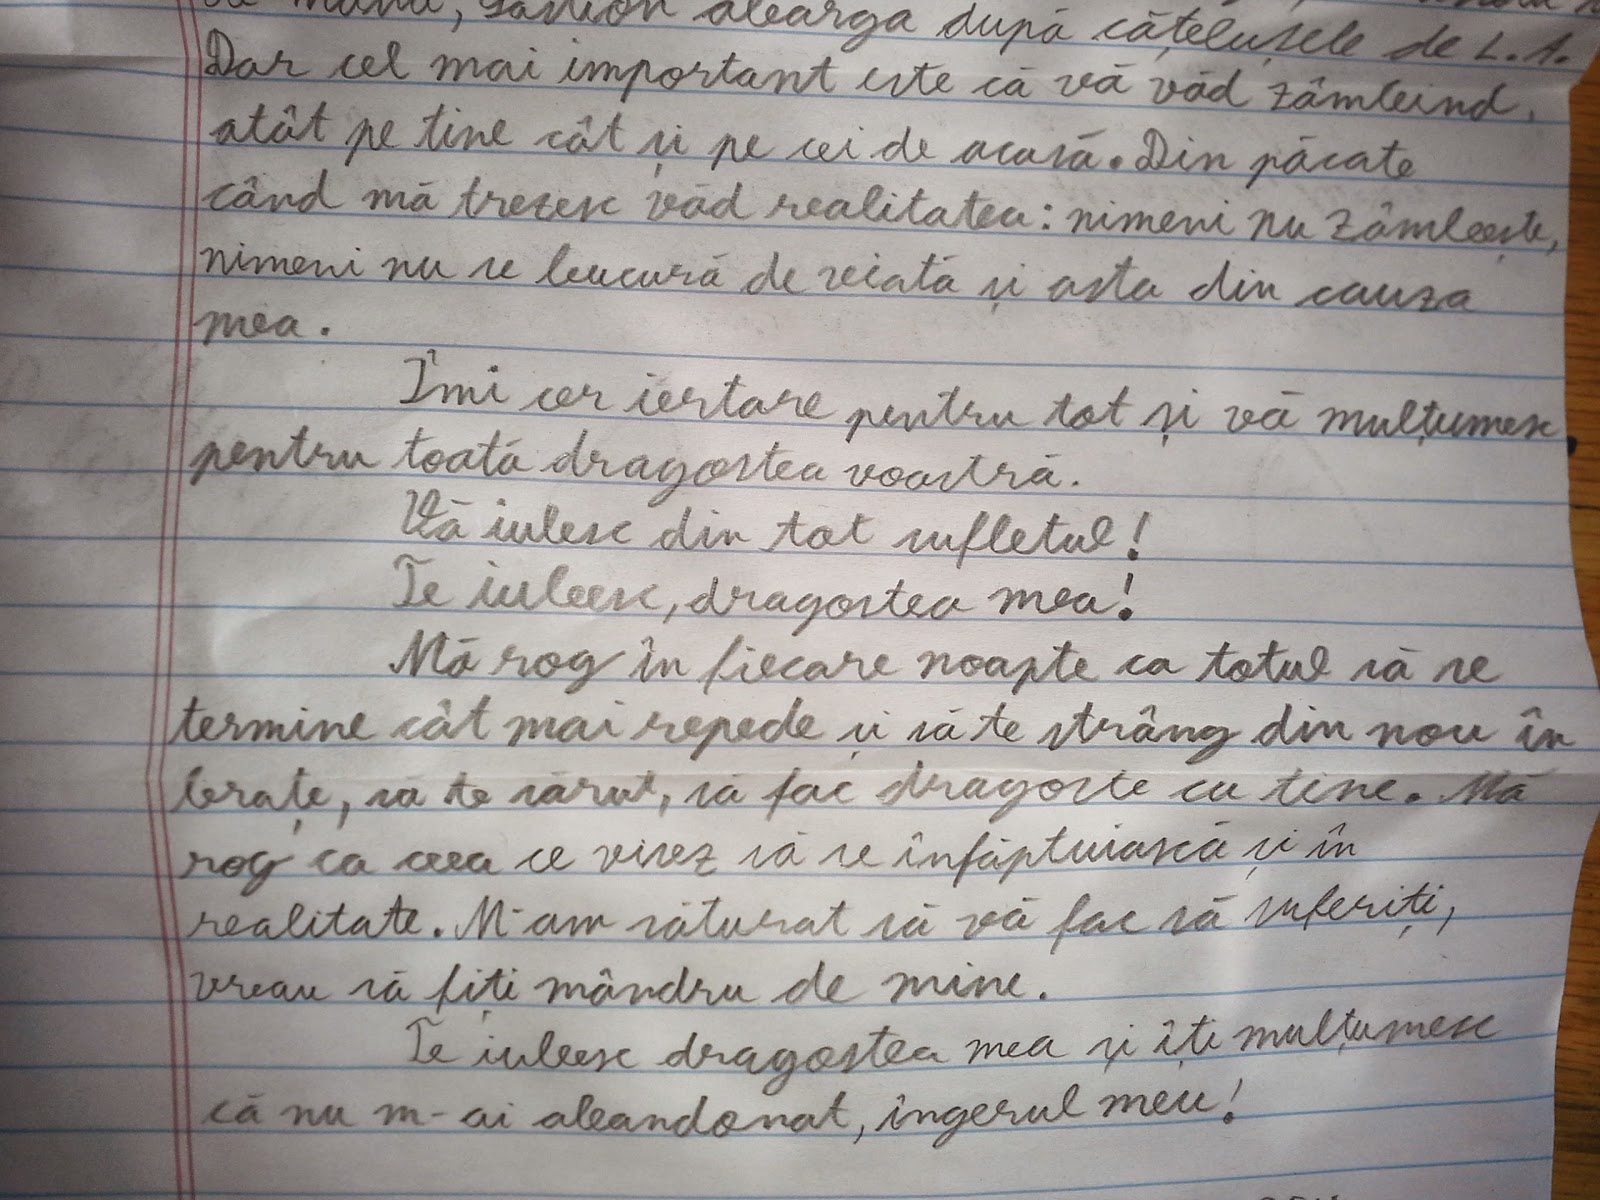 de mână, alearga după cățelușele de L.A.
Dar cel mai important este că vă văd zâmbind,
atât pe tine cât și pe cei de acasă. Din păcate
când mă trezesc văd realitatea: nimeni nu zâmbește,
nimeni nu se bucură de viată și asta din cauza
mea.
Îmi cer iertare pentru tot și vă mulțumesc
pentru toată dragostea voastră.
Vă iubesc din tot sufletul!
Te iubesc, dragostea mea!
Mă rog în fiecare noapte ca totul să se
termine cât mai repede și să te strâng din nou în
brațe, să te sărut, să fac dragoste cu tine. Mă
rog ca ceea ce visez să se înfăptuiască și în
realitate. M-am săturat să vă fac să suferiți,
vreau să fiți mândru de mine.
Te iubesc dragostea mea și îți mulțumesc
că nu m-ai abandonat, îngerul meu!